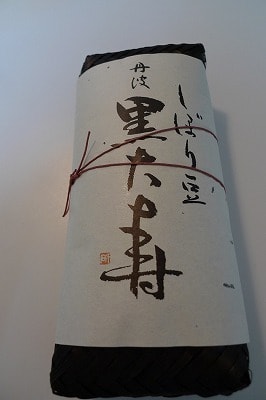 しぼり豆
丹波
黒大寿